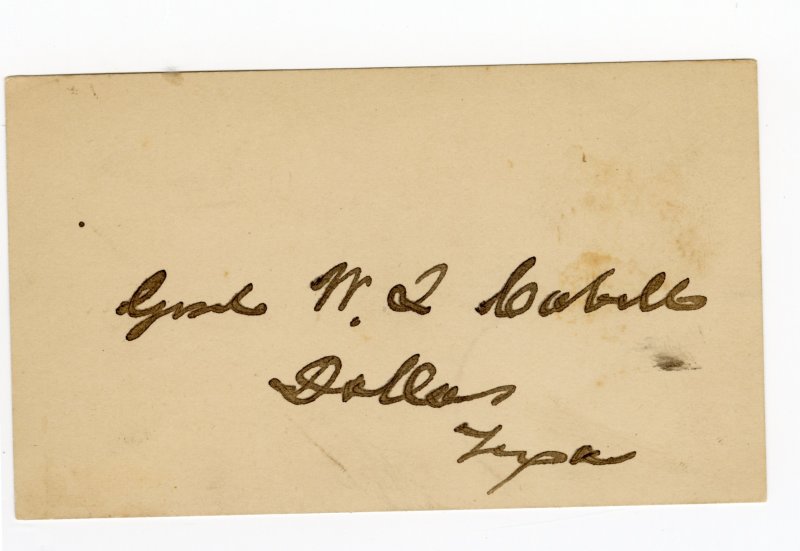 Genl W. L Cabell
Dallas
Texas